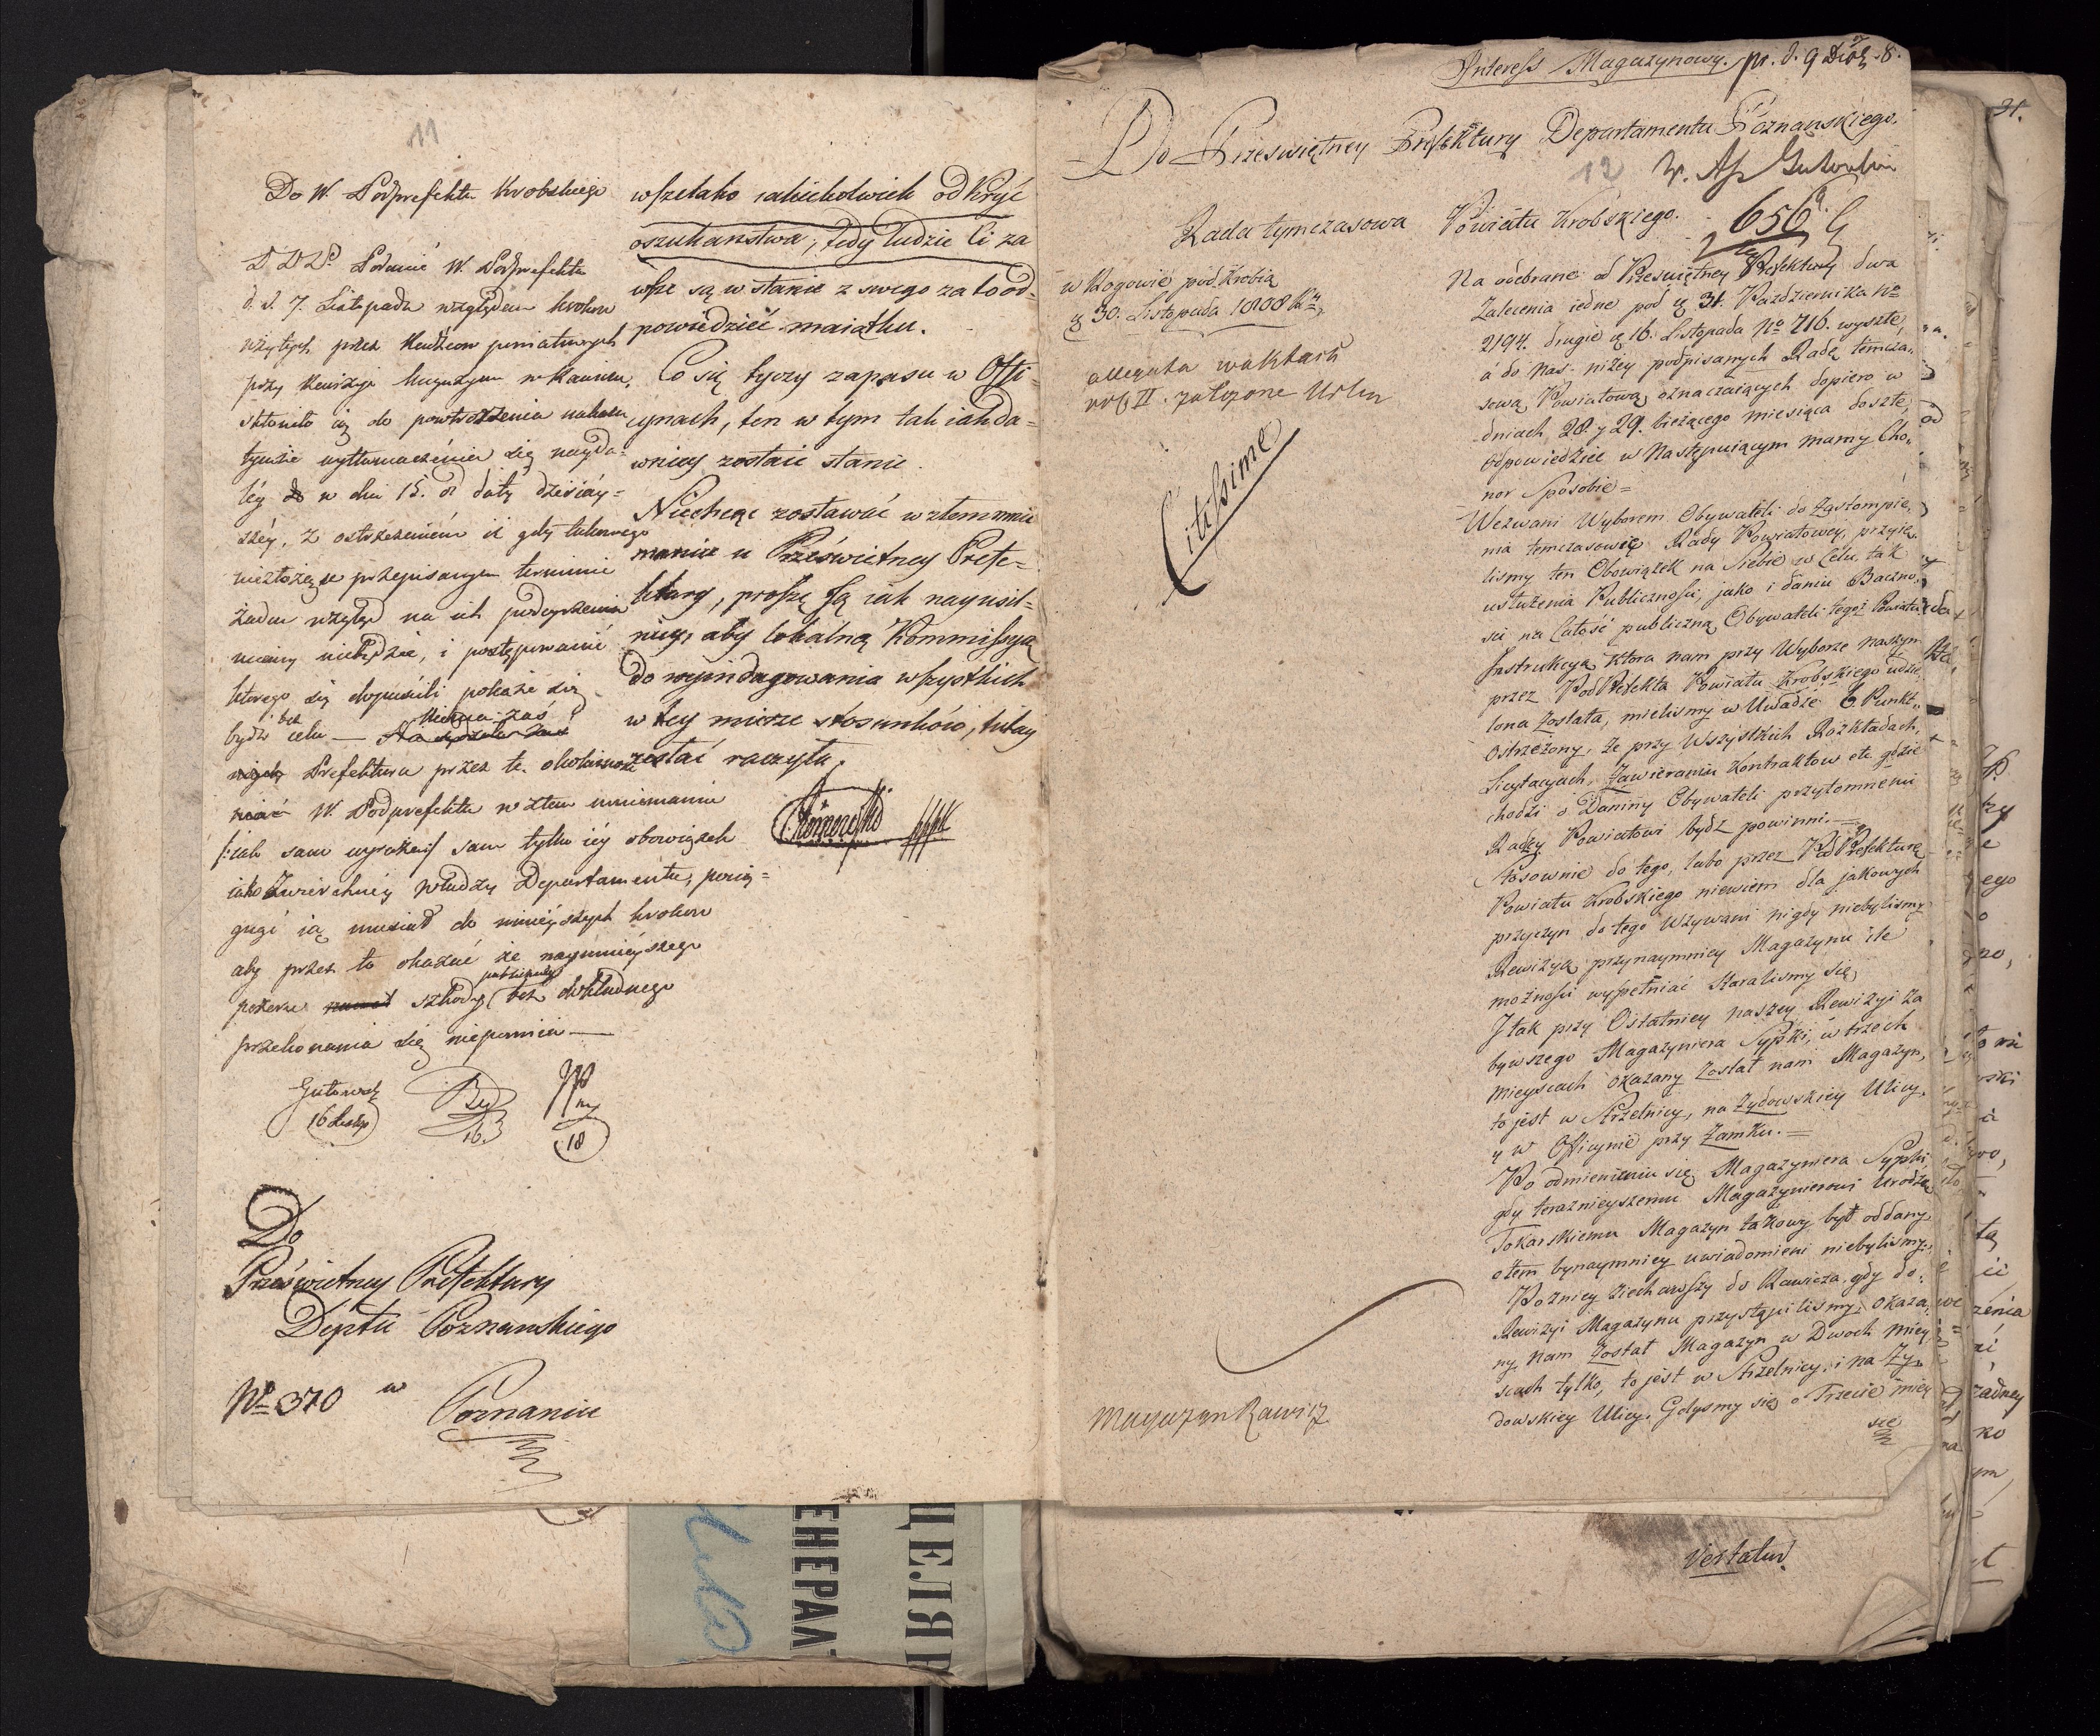 11
Do W. Podprefekta Krobskiego
D. D. P. Podanie W. Podprefekta
d. d. 7. Listopada względem kroków
użytych przez
przy Rewizyi Magazynu w Rawiczu,
skłoniło ią do powtórzenia nakazu
tymże wytłumaczenia się nayda-
léy w dni 15. od daty dzisiéy-
széy, z ostrzeżeniem iż gdy takowego
niezłożą w przepisanym terminie
żaden wzgląd na ich
miany niebędzie, i postępowanie
którego się dopuścili pokaże się
bydź bez celu —
Prefektura przez te. okoliczność
W. Podprefekta w złem mniemaniu
/:iak sam wyraża:/ sam tylko iéy obowiązek
iako Zwierzchniéy Władzy Departamentu, pocią-
gnąć ią musiał do ninieyszych kroków
aby przez to okazać że naymnieyszego
pozoru szkody publicznéy bez dokładnego
przekonania się niepominie —
Gutowsk
16 Listop
16
18
wszelako iakieckolwiek odkryć
oszukaństwa, tedy ludzie Ci za
wsze są w stanie z swego za to od-
powiedzieć maiątku.
Co się tyczy zapasu w Offi-
cynach, ten w tym tak iak da-
wniey zostaie stanie.
Niechcąc zostawać w złem mnie
maniu u Prześwietney Prefe-
ktury, proszę Ją iak nayusil-
niey, aby lokalną Kommissyą
do wyindagowania wszystkich
w tey mierze stosunków, tutay
zesłać raczyła.
Do
Prześwietney Prefektury
Deptu Poznanskiego
w
Nº 370
Poznaniu
Interess Magazynowy. pr. d. 9 Xbr. 8.
Do Przeświętney Prefektury Departamentu Poznańskiego.
12
656
Rada tymczasowa Powiatu Krobskiego.
w Rogowie pod Krobią
30. Listopada 1808 Ru
allegata w aktach
vol II. złożone
Citissime
Na odebrane od Przeświętney Prefektury dwa
Zalecenia iedne pod 31. Października Nº
2194. drugie 16. Listopada Nº 716. wyszłe,
a do nas niżey podpisanych Radę temcza-
sową Powiatową oznaczaiących dopiero w
dniach 28. y 29. bieżącego miesiąca doszłe,
odpowiedzieć w Następuiącym mamy Cho-
nor Sposobie =
Wezwani Wyborem Obywateli do Zastompie-
nia temczasowię Rady Powiatowéy, przyię-
lismy ten Obowiązek na Siebie w Celu, tak
usłużenia Publicznosci, jako i daniu Baczno-
sci na Całość publiczną Obywateli tegoż Powiatu.
Instrukcyą która nam przy Wyborze naszym
przez PodPrefekta Powiatu Krobskiego udzie-
lona Została, mielismy w Uwadze 6 Punkt.
Ostrzeżony, że przy Wszystkich Rozkładach,
Licytacyach, Zawieraniu Kontraktow etc gdzie
chodzi o Daniny Obywateli przytomnemi
Radzcy Powiatowi bydź powinni. —
Stosownie do tego, lubo przez PodPrefekturę
Powiatu Krobskiego niewiem dla jakowych
przyczyn do tego Wzywani nigdy niebylismy
Rewizyą przynaymniey Magazynu ile
możnosci wypełniać Staralismy się,
I tak przy Ostatniey naszey Rewizyi za
bywszego Magazyniera Sypki, w trzech
Mieyscach okazany Został nam Magazyn,
to jest w Strzelnicy, na Zydowskiéy Ulicy,
y w Officynie przy Zamku. =
Po odmienieniu się Magazyniera Sypki
gdy teraznieyszemu Magazynierowi Urodze
Tokarskiemu Magazyn takowy był oddany,
o tem bynaymniey uwiadomieni niebylismy.
Pozniey ziechawszy do Rawicza, gdy do
Rewizyi Magazynu przystąpilismy, okaza-
ny nam Został Magazyn w Dwoch miey
scach tylko, to jest w Strzelnicy, i na Zy-
dowskiey Ulicy. Gdysmy się o Trzecie miey
sce
Magazyn Rawicz
Vertatur.
31.
ЕНЕРАЛ
ЦЕЛЯР